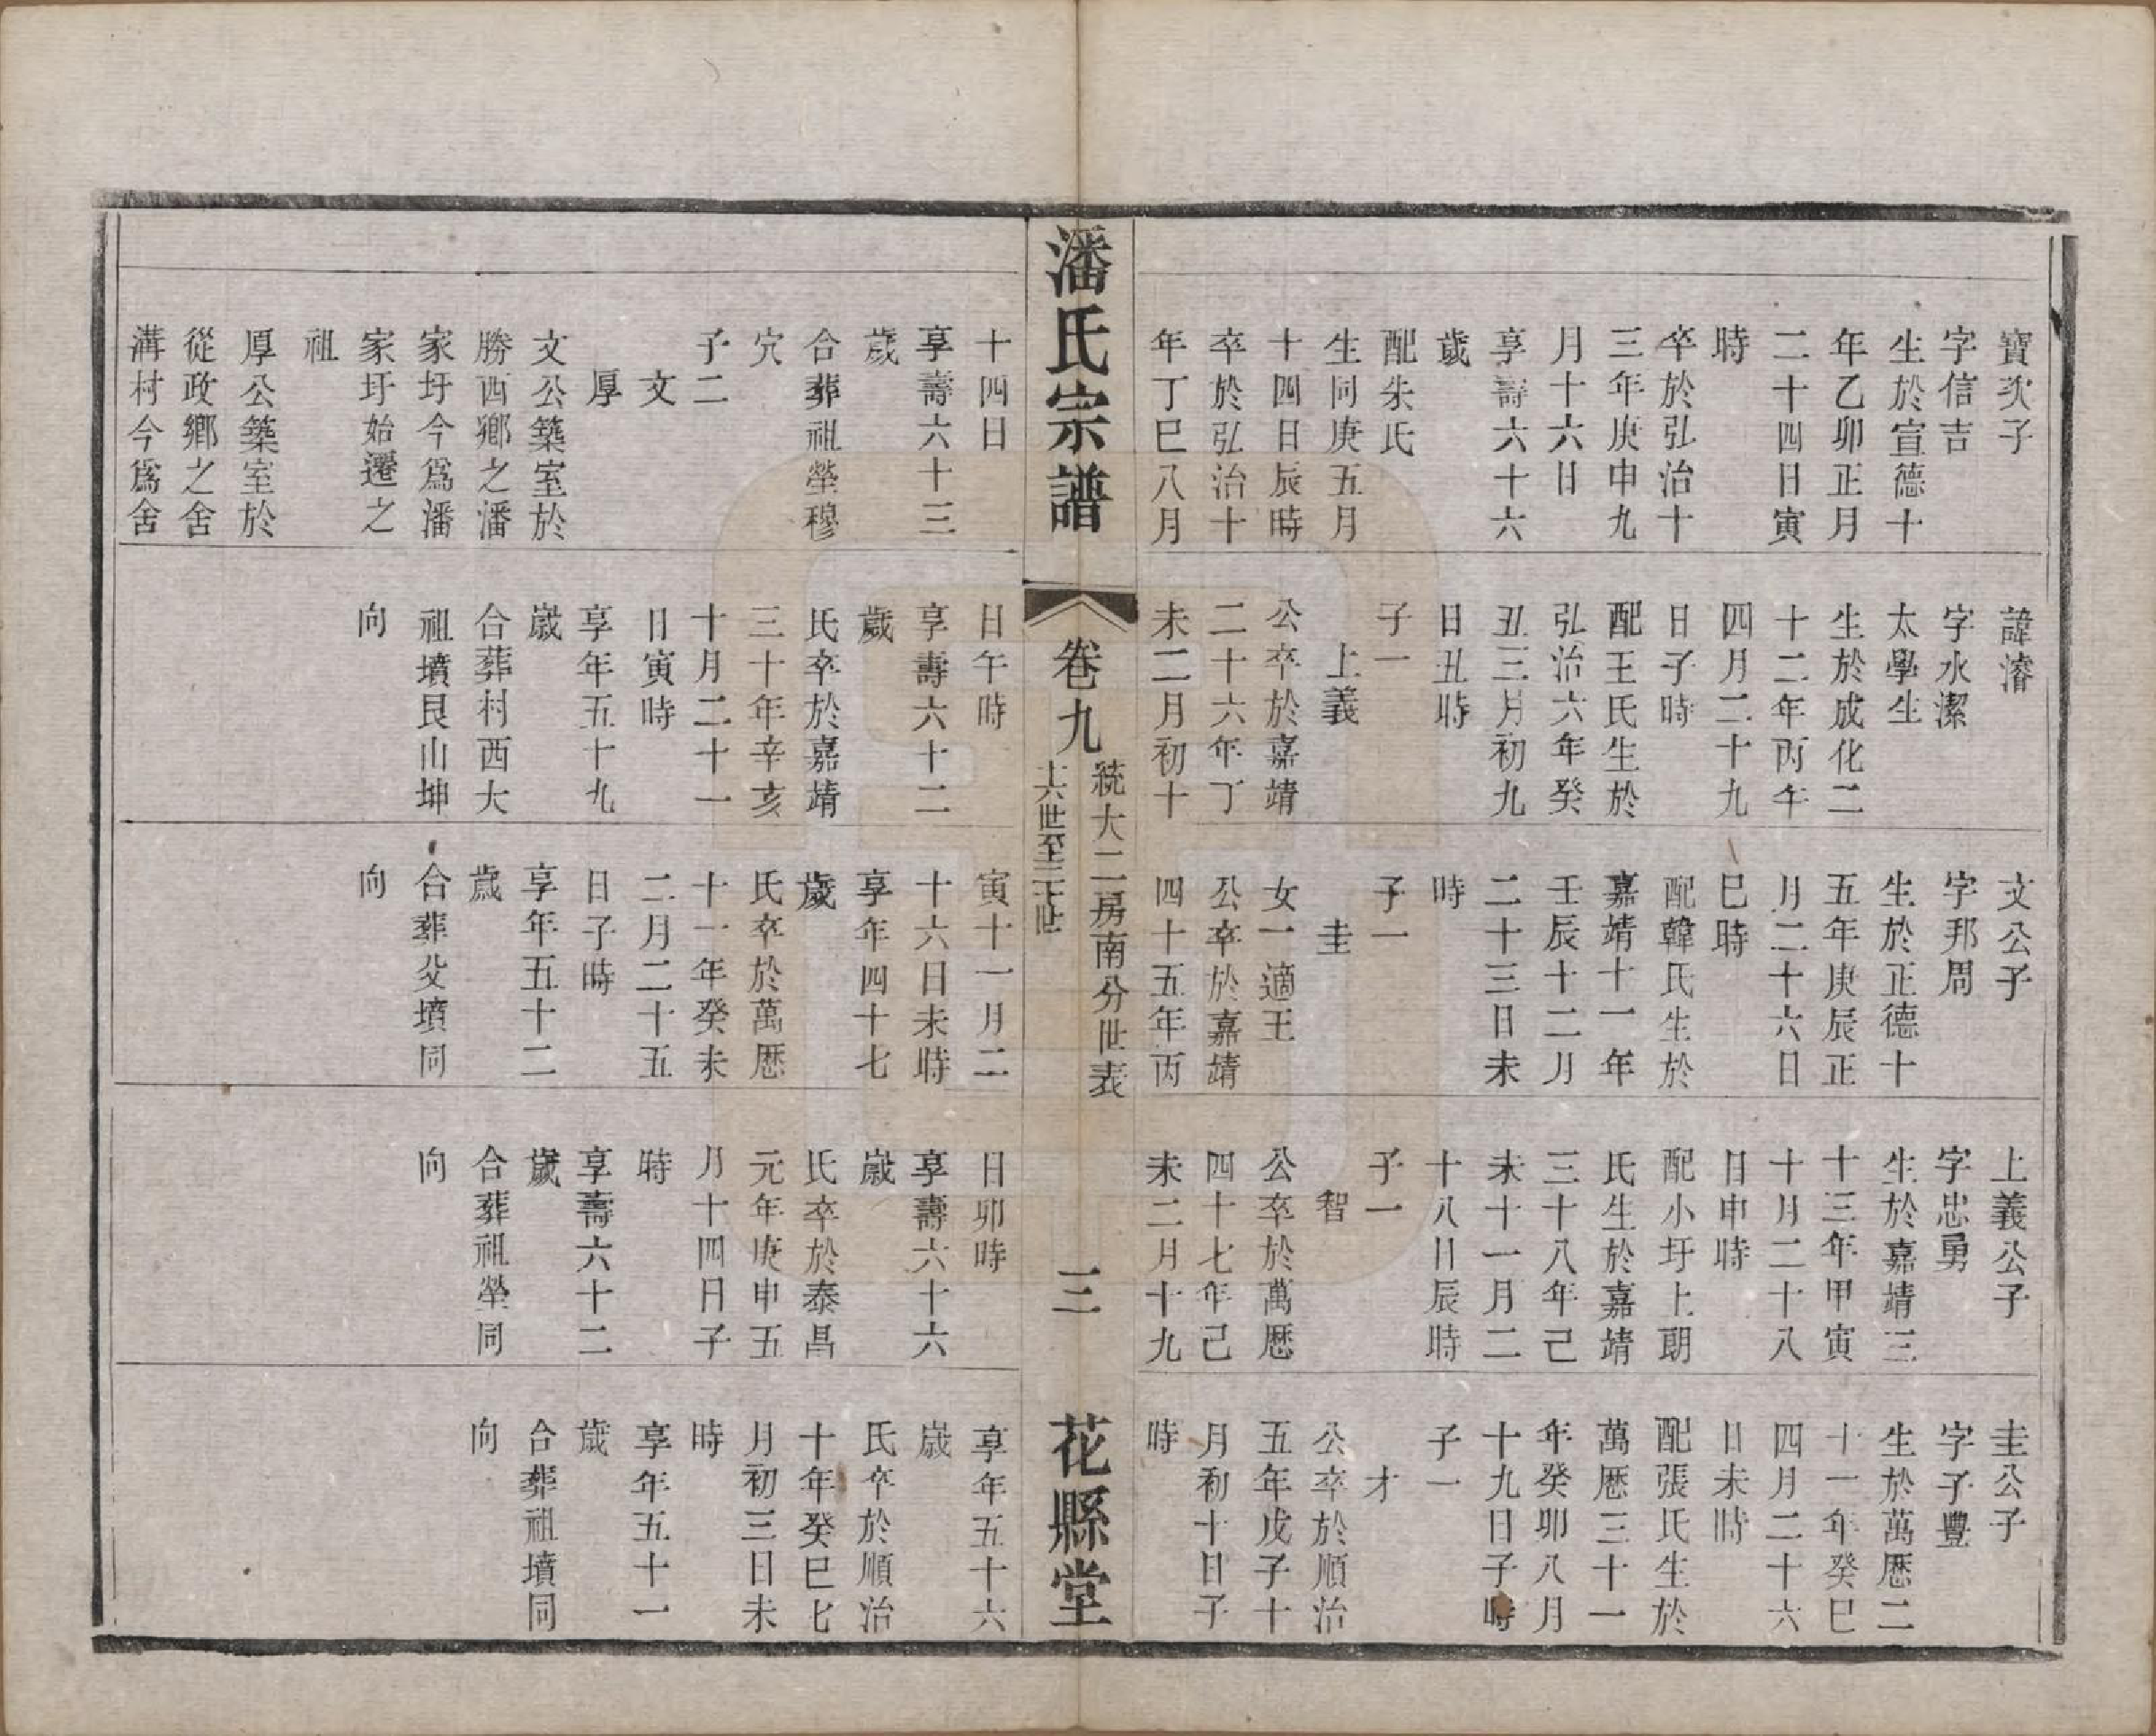 寶次子
字信吉
生於宣德十
年乙卯正月
二十四日寅
時
卒於弘治十
三年庚申九
月十六日
享壽六十六
歲
配朱氏
生同庚五月
十四日辰時
卒於弘治十
年丁巳八月
諱濬
字水潔
太學生
生於成化二
十二年丙午
四月二十九
日子時
配王氏生於
弘治六年癸
丑三月初九
日丑時
子一
上義
公卒於嘉靖
二十六年丁
未二月初十
文公子
字邦周
生於正德十
五年庚辰正
月二十六日
巳時
配韓氏生於
嘉靖十一年
壬辰十二月
二十三日未
時
子一
圭
女一適王
公卒於嘉靖
四十五年丙
上義公子
字忠勇
生於嘉靖三
十三年甲寅
十月二十八
日申時
配小圩上朗
氏生於嘉靖
三十八年己
未十一月二
十八日辰時
子一
智
公卒於萬歷
四十七年己
未二月十九
圭公子
字子豐
生於萬歷二
十一年癸巳
四月二十六
日未時
配張氏生於
萬歷三十一
年癸卯八月
十九日子時
子一
才
公卒於順治
五年戊子十
月初十日子
時
潘氏宗譜
卷九
統大二房南分世表
十六世至二十世
三
花縣堂
十四日
享壽六十三
歲
合葬祖塋穆
穴
子二
文
厚
文公築室於
勝西鄉之潘
家圩今為潘
家圩始遷之
祖
厚公築室於
從政鄉之舍
溝村今為舍
日午時
享壽六十二
歲
氏卒於嘉靖
三十年辛亥
十月二十一
日寅時
享年五十九
歲
合葬村西大
祖墳艮山坤
向
寅十一月二
十六日未時
享年四十七
歲
氏卒於萬歷
十一年癸未
二月二十五
日子時
享年五十二
歲
合葬父墳同
向
日卯時
享壽六十六
歲
氏卒於泰昌
元年庚申五
月十四日子
時
享壽六十二
歲
合葬祖塋同
向
享年五十六
歲
氏卒於順治
十年癸巳七
月初三日未
時
享年五十一
歲
合葬祖墳同
向